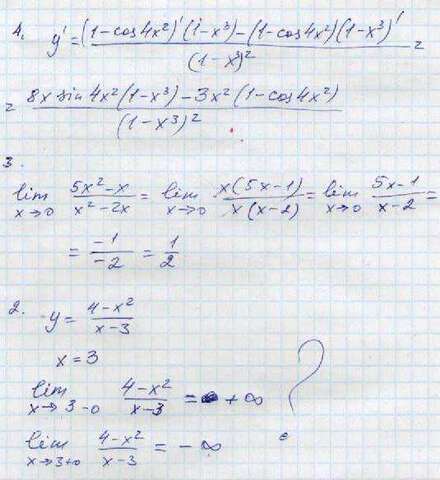 4. y' = ((1-cos4x²)'(1-x³)-(1-cos4x²)(1-x³)')/(1-x³)² =
= (8x sin4x²(1-x³)-3x²(1-cos4x²))/(1-x³)²
3.
lim x→0 (5x²-x)/(x²-2x) = lim x→0 x(5x-1)/x(x-2) = lim x→0 (5x-1)/(x-2) =
= -1/-2 = 1/2
2. y = (4-x²)/(x-3)
x=3
lim x→3-0 (4-x²)/(x-3) = +∞ ?
lim x→3+0 (4-x²)/(x-3) = -∞